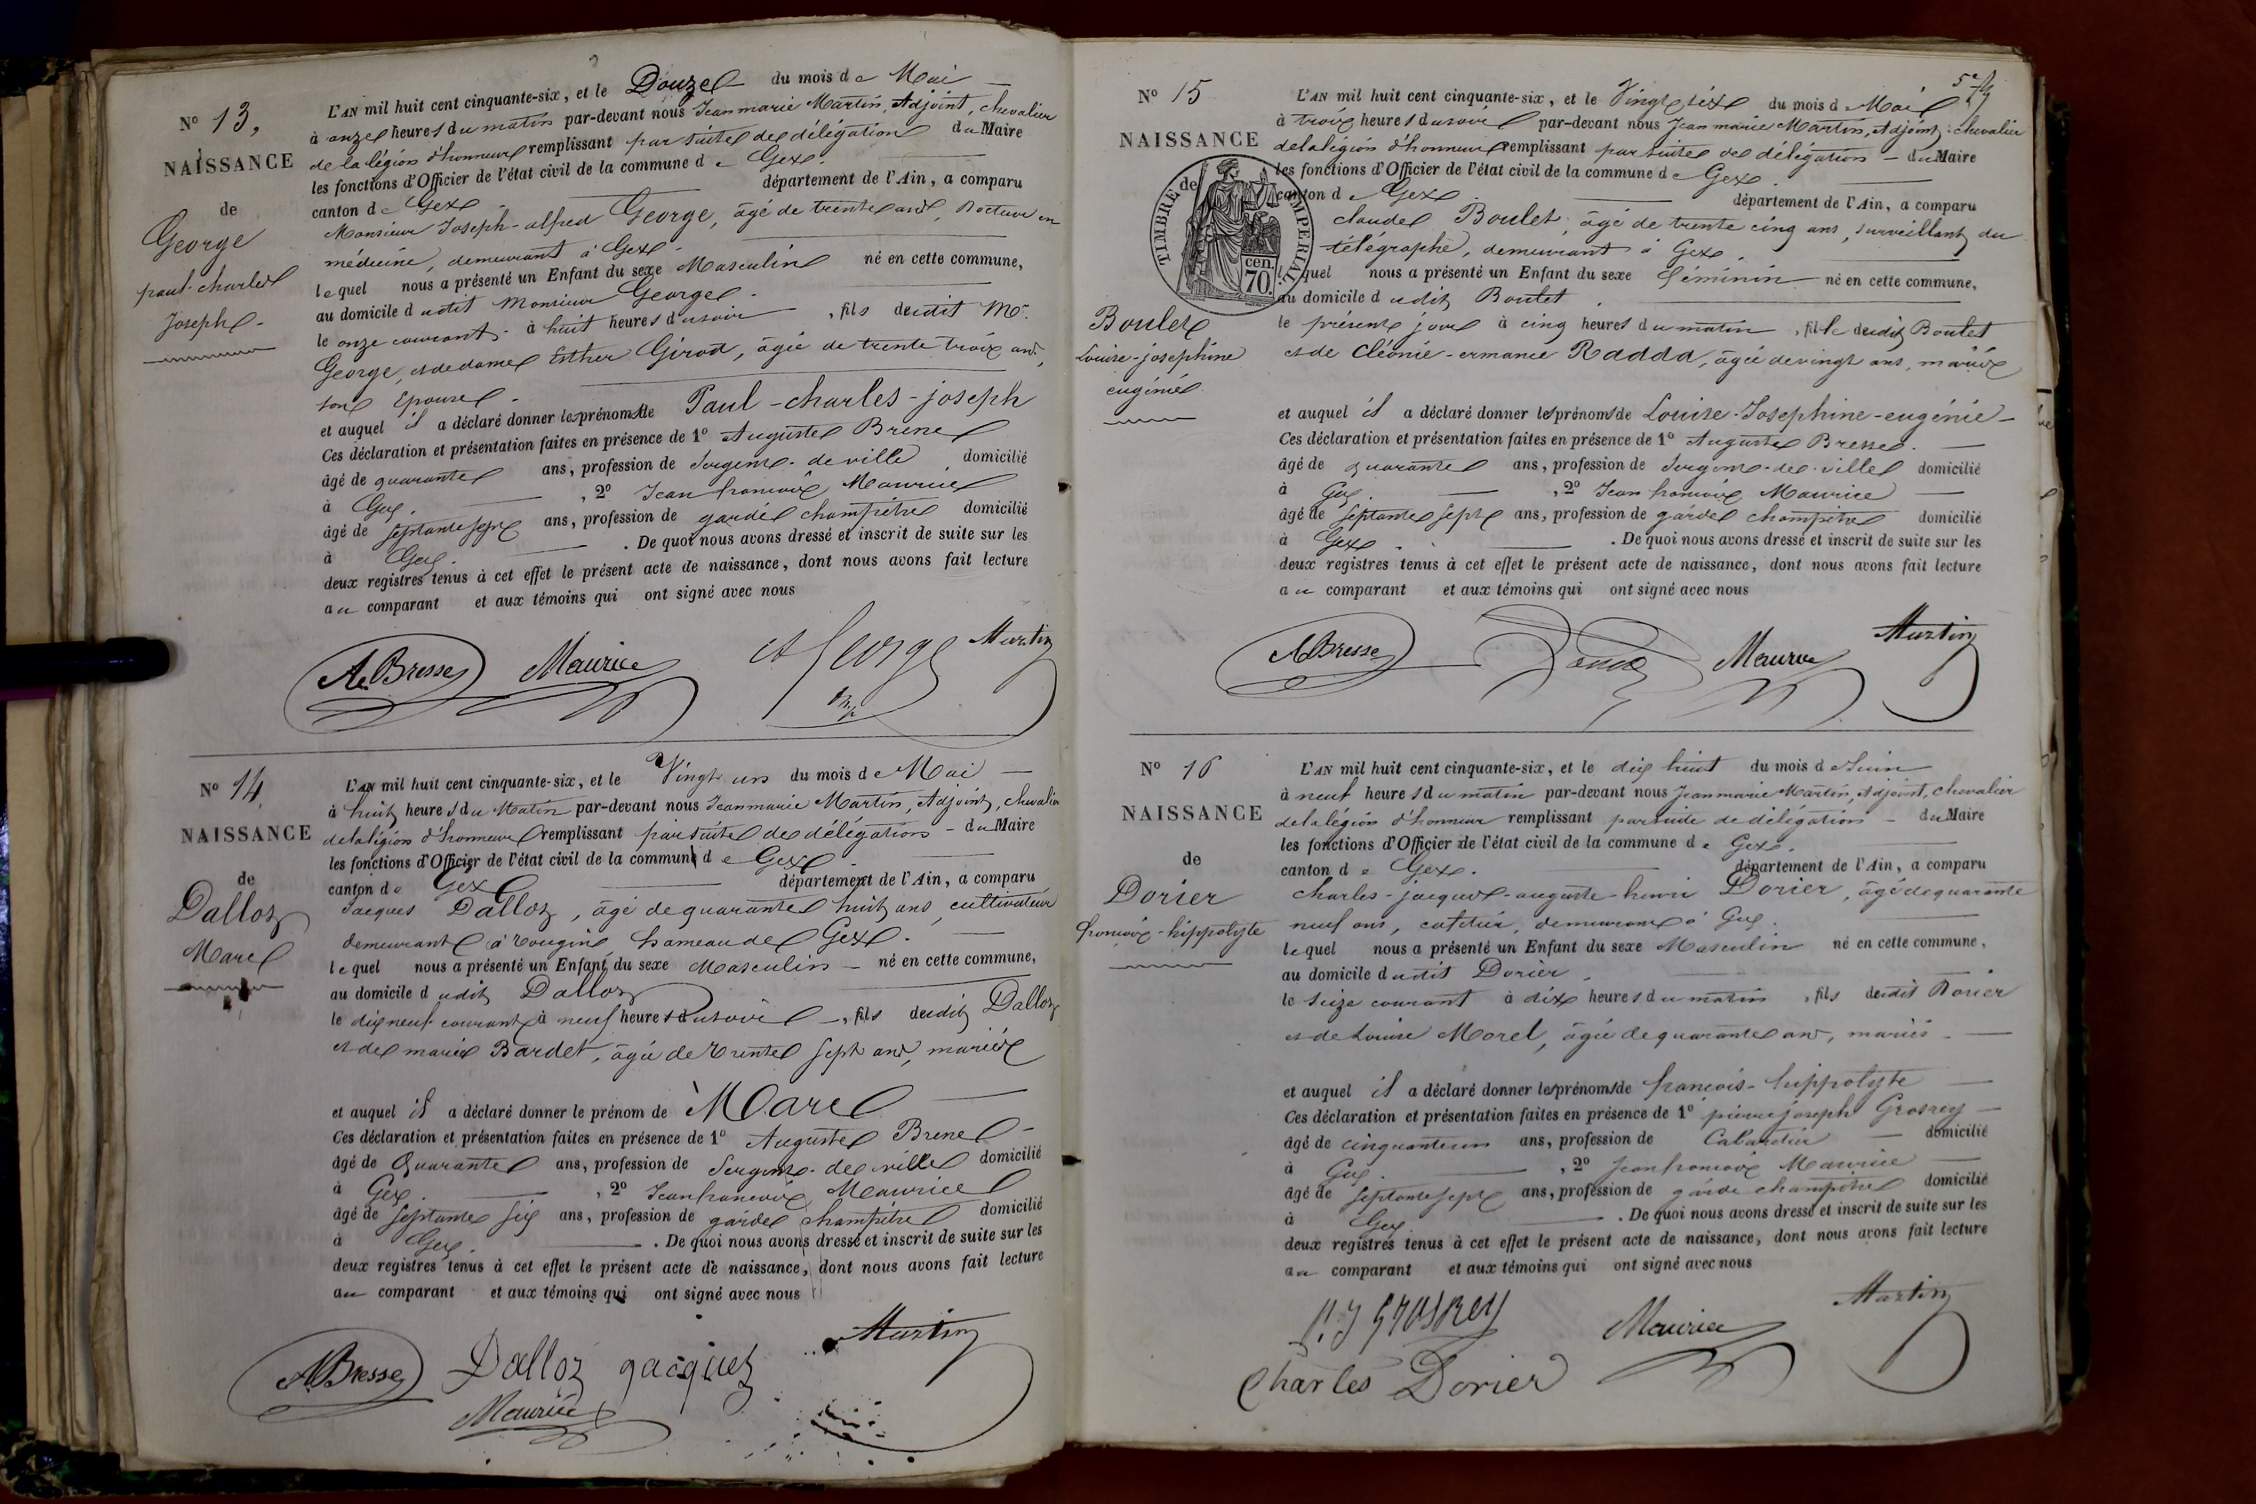 N° 13,
NAISSANCE
de
George
paul-charles
Joseph
L'AN mil huit cent cinquante-six, et le Douze du mois de Mai
à onze heures du matin par-devant nous Jean marie Martin, Adjoint, chevalier
de la légion d'honneur remplissant par suite de délégation du Maire
les fonctions d'Officier de l'état civil de la commune de Gex.
canton de Gex. département de l'Ain, a comparu
Monsieur Joseph-alfred George, âgé de trente ans, Docteur en
médecine, demeurant à Gex.
lequel nous a présenté un Enfant du sexe Masculin né en cette commune,
au domicile dudit Monsieur George.
le onze courant à huit heures du soir, fils dudit Mr.
George, et de dame Esther Girod, âgée de trente trois ans,
son Epouse.
et auquel il a déclaré donner les prénoms de Paul-charles-joseph
Ces déclaration et présentation faites en présence de 1° Auguste Bresse
âgé de quarante ans, profession de Sergent-de ville domicilié
à Gex. , 2° Jean françois Maurice
âgé de septante sept ans, profession de garde champêtre domicilié
à Gex. . De quoi nous avons dressé et inscrit de suite sur les
deux registres tenus à cet effet le présent acte de naissance, dont nous avons fait lecture
au comparant et aux témoins qui ont signé avec nous
A. Bresse Maurice A George Martin
N° 14
NAISSANCE
de
Dalloz
Marc
L'AN mil huit cent cinquante-six, et le Vingt un du mois de Mai
à huit heures du Matin par-devant nous Jean marie Martin, Adjoint, chevalier
de la légion d'honneur remplissant par suite de délégation - du Maire
les fonctions d'Officier de l'état civil de la commune de Gex.
canton de Gex département de l'Ain, a comparu
Jacques Dalloz, âgé de quarante huit ans, cultivateur
demeurant à Tougin hameau de Gex.
lequel nous a présenté un Enfant du sexe Masculin - né en cette commune,
au domicile dudit Dalloz
le dix neuf courant à neuf heures du soir -, fils dudit Dalloz
et de marie Bardet, âgée de trente sept ans, mariés
et auquel il a déclaré donner le prénom de Marc
Ces déclaration et présentation faites en présence de 1° Auguste Bresse
âgé de Quarante ans, profession de Sergent-de ville domicilié
à Gex. , 2° Jean françois Maurice
âgé de septante six ans, profession de garde champêtre domicilié
à Gex. . De quoi nous avons dressé et inscrit de suite sur les
deux registres tenus à cet effet le présent acte de naissance, dont nous avons fait lecture
au comparant et aux témoins qui ont signé avec nous
A. Bresse Dalloz jacques Martin
Maurice
N° 15
NAISSANCE
TIMBRE IMPERIAL
de
70 cen.
Boulet
Louise-josephine
eugénie
L'AN mil huit cent cinquante-six, et le Vingt six du mois de Mai
à trois heures du soir par-devant nous Jean marie Martin, Adjoint, chevalier
de la légion d'honneur remplissant par suite de délégation - du Maire
les fonctions d'Officier de l'état civil de la commune de Gex.
canton de Gex département de l'Ain, a comparu
claude Boulet, âgé de trente cinq ans, surveillant du
télégraphe, demeurant à Gex.
lequel nous a présenté un Enfant du sexe féminin né en cette commune,
au domicile dudit Boulet.
le présent jour à cinq heures du matin, fille dudit Boulet
et de Cléonie-ermance Radda, âgée de vingt ans, mariés
et auquel il a déclaré donner les prénoms de Louise-Josephine-eugénie-
Ces déclaration et présentation faites en présence de 1° Auguste Bresse.
âgé de quarante ans, profession de Sergent-de-ville domicilié
à Gex. , 2° Jean françois Maurice
âgé de septante sept ans, profession de garde champêtre domicilié
à Gex. . De quoi nous avons dressé et inscrit de suite sur les
deux registres tenus à cet effet le présent acte de naissance, dont nous avons fait lecture
au comparant et aux témoins qui ont signé avec nous
A Bresse Maurice Martin
N° 16
NAISSANCE
de
Dorier
françois-hippolyte
L'AN mil huit cent cinquante-six, et le dix huit du mois de Juin
à neuf heures du matin par-devant nous Jean marie Martin, Adjoint, chevalier
de la légion d'honneur remplissant par suite de délégation - du Maire
les fonctions d'Officier de l'état civil de la commune de Gex.
canton de Gex. département de l'Ain, a comparu
charles-jacques-auguste-henri Dorier, âgé de quarante
neuf ans, cafetier, demeurant à Gex.
lequel nous a présenté un Enfant du sexe Masculin né en cette commune,
au domicile dudit Dorier.
le seize courant à dix heures du matin, fils dudit Dorier
et de Louise Morel, âgée de quarante ans, mariés -
et auquel il a déclaré donner les prénoms de françois-hippolyte
Ces déclaration et présentation faites en présence de 1° pierre joseph Grosrey
âgé de cinquante un ans, profession de Cabaretier domicilié
à Gex. , 2° Jean françois Maurice
âgé de septante sept ans, profession de garde champêtre domicilié
à Gex. . De quoi nous avons dressé et inscrit de suite sur les
deux registres tenus à cet effet le présent acte de naissance, dont nous avons fait lecture
au comparant et aux témoins qui ont signé avec nous
P. J GrosRey Maurice Martin
Charles Dorier